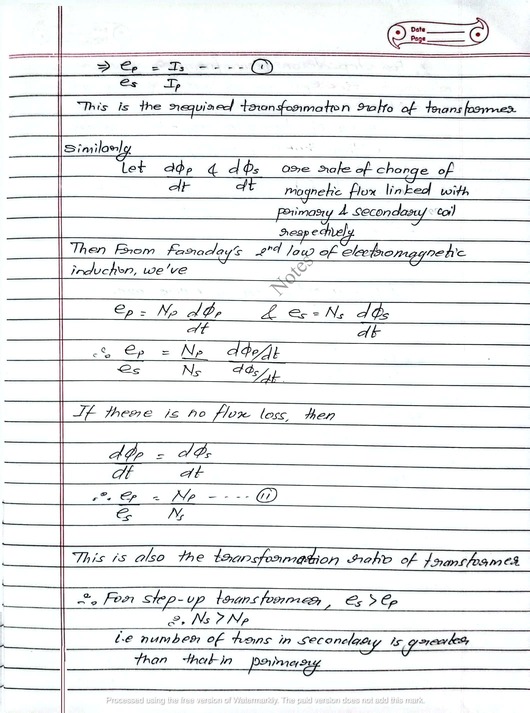 Date
Page
⇒ eₚ/eₛ = Iₛ/Iₚ ---- (i)
This is the required transformation ratio of transformer
Similarly
Let dφₚ/dt & dφₛ/dt are rate of change of
magnetic flux linked with
primary & secondary coil
respectively
Then From Faraday's 2nd law of electromagnetic
induction, we've
Notes
eₚ = Nₚ dφₚ/dt & eₛ = Nₛ dφₛ/dt
∴ eₚ/eₛ = Nₚ/Nₛ dφₚ/dt / dφₛ/dt
If there is no flux loss, then
dφₚ/dt = dφₛ/dt
∴ eₚ/eₛ = Nₚ/Nₛ ---- (ii)
This is also the transformation ratio of transformer
∴ For step-up transformer, eₛ > eₚ
∴ Nₛ > Nₚ
i.e number of turns in secondary is greater
than that in primary
Processed using the free version of Watermarkly. The paid version does not add this mark.